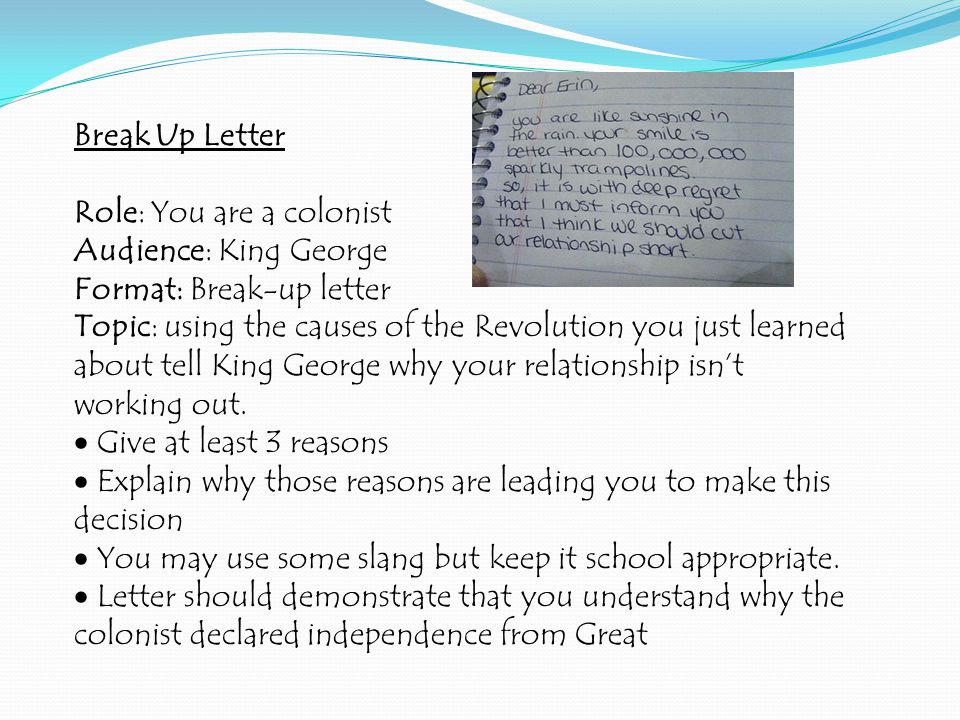 Dear Erin,
you are like sunshine in
the rain. your smile is
better than 100,000,000
sparkly trampolines.
so, it is with deep regret
that I must inform you
that I think we should cut
our relationship short.
Break Up Letter
Role: You are a colonist
Audience: King George
Format: Break-up letter
Topic: using the causes of the Revolution you just learned
about tell King George why your relationship isn’t
working out.
• Give at least 3 reasons
• Explain why those reasons are leading you to make this
decision
• You may use some slang but keep it school appropriate.
• Letter should demonstrate that you understand why the
colonist declared independence from Great